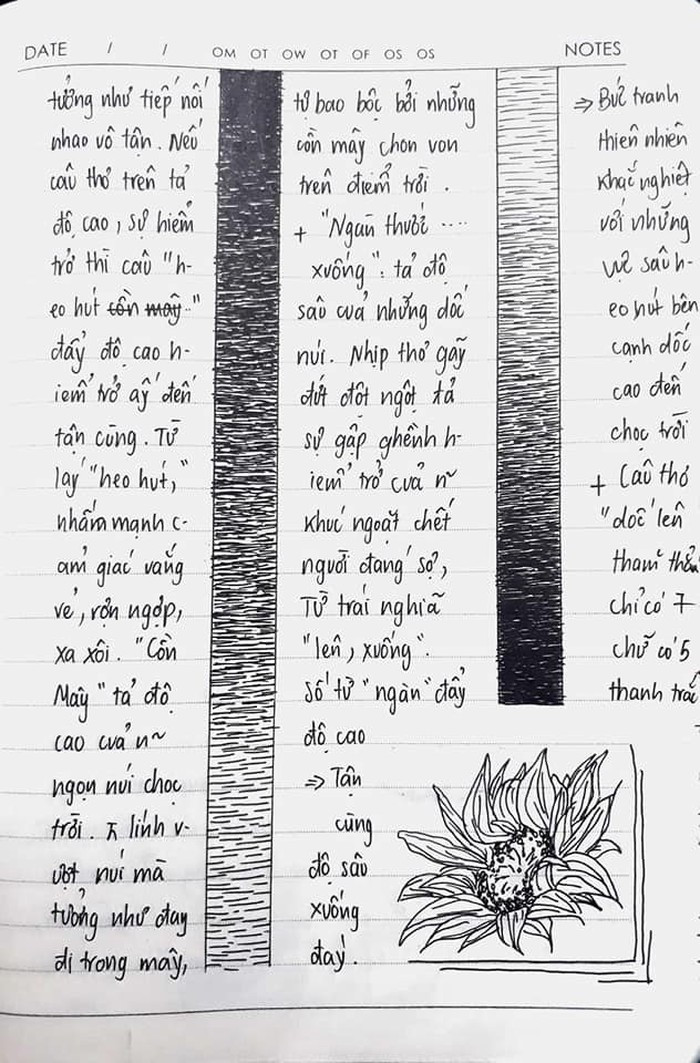 DATE / / OM OT OW OT OF OS OS NOTES
tưởng như tiếp nối
nhao vô tận. Nếu
câu thơ trên tả
độ cao, sự hiểm
trở thì câu "h-
eo hút cồn mây.."
đẩy độ cao h-
iểm trở ấy đến
tận cùng. Từ
láy "heo hút,"
nhấm mạnh c-
ảm giác vắng
vẻ, rợn ngợp,
xa xôi. "Cồn
Mây" tả độ
cao của n~
ngọn núi chọc
trời. lính v-
ượt núi mà
tưởng như đay
đi trong mây,
tự bao bộc bởi những
cồn mây chon von
trên điểm trời.
+ "Ngàn thước ....
xuống": tả độ
sâu của những dốc
núi. Nhịp thơ gãy
đứt đột ngột tả
sự gấp ghềnh h-
iểm trở của n~
khúc ngoặt chết
người đáng sợ,
Từ trái nghĩa
"lên, xuống".
Số từ "ngàn" đẩy
độ cao
=> Tận
cùng
độ sâu
xuống
đáy.
=> Bức tranh
thiên nhiên
khắc nghiệt
với những
vực sâu h-
eo hút bên
cạnh dốc
cao đến
chọc trời
+ Câu thơ
"dốc lên
thăm thẳm
chỉ có 7
chữ có 5
thanh trắc